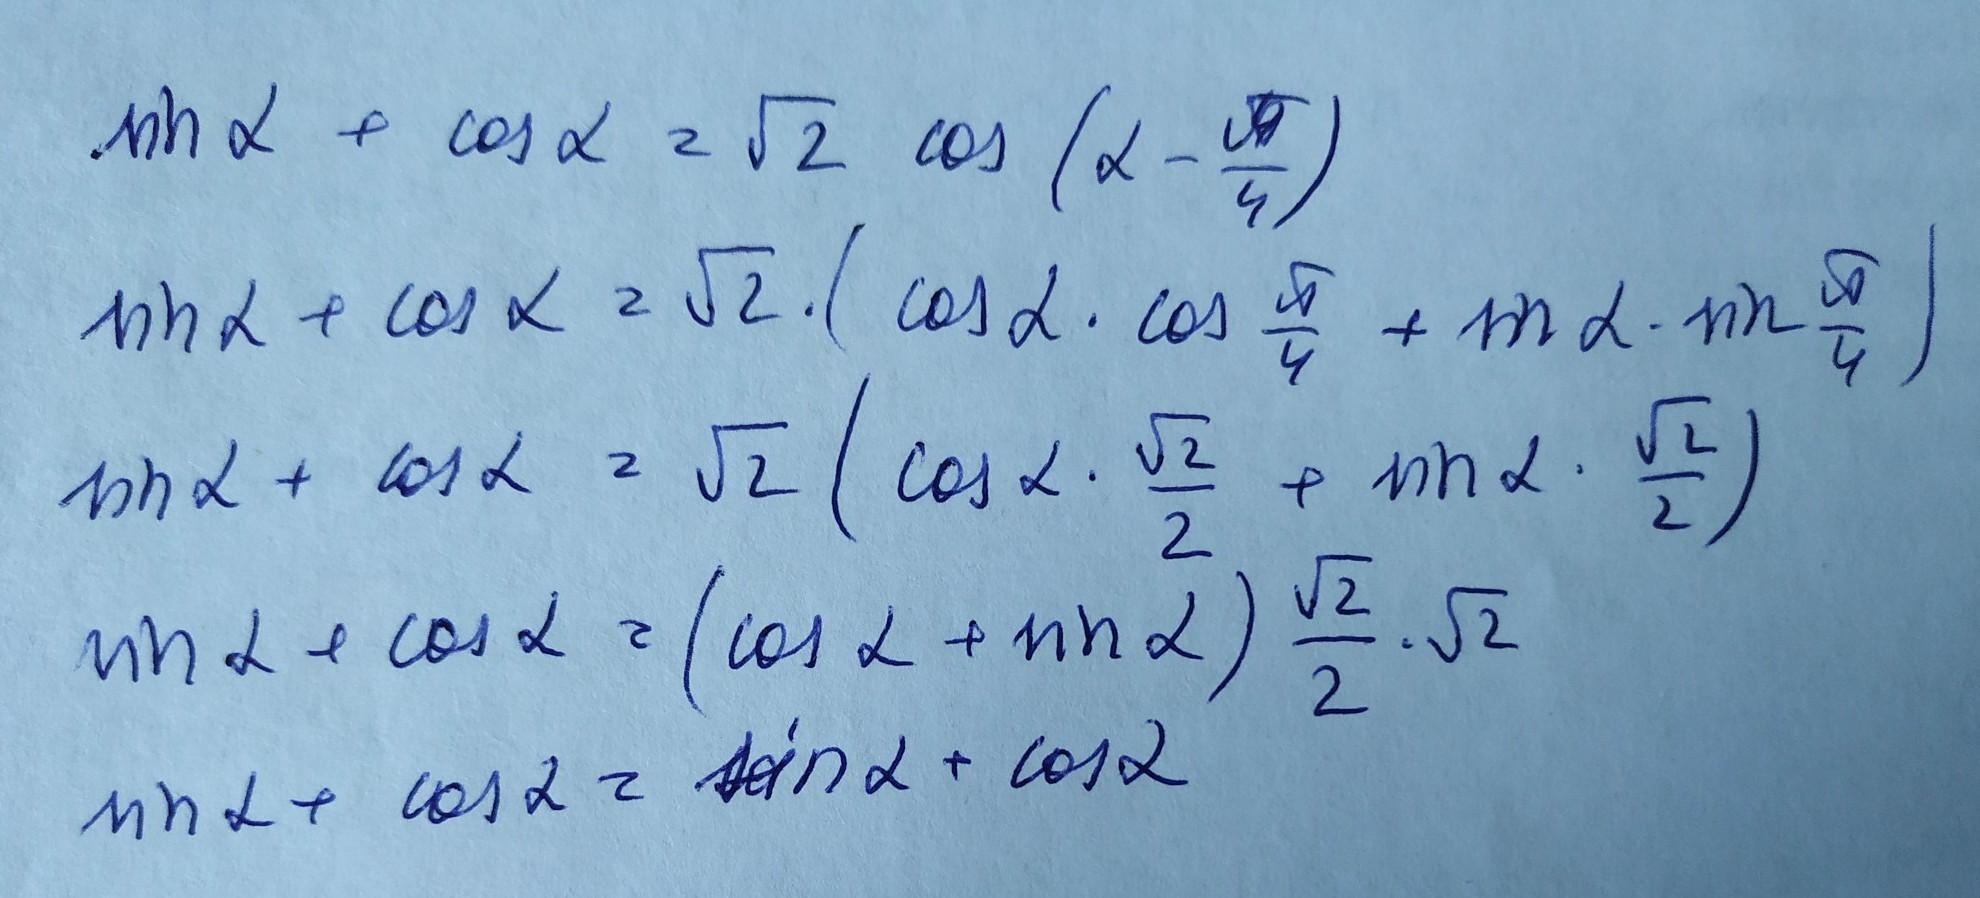 sin α + cos α = √2 cos (α - π/4)
sin α + cos α = √2 · (cos α · cos π/4 + sin α · sin π/4)
sin α + cos α = √2 (cos α · √2/2 + sin α · √2/2)
sin α + cos α = (cos α + sin α) √2/2 · √2
sin α + cos α = sin α + cos α